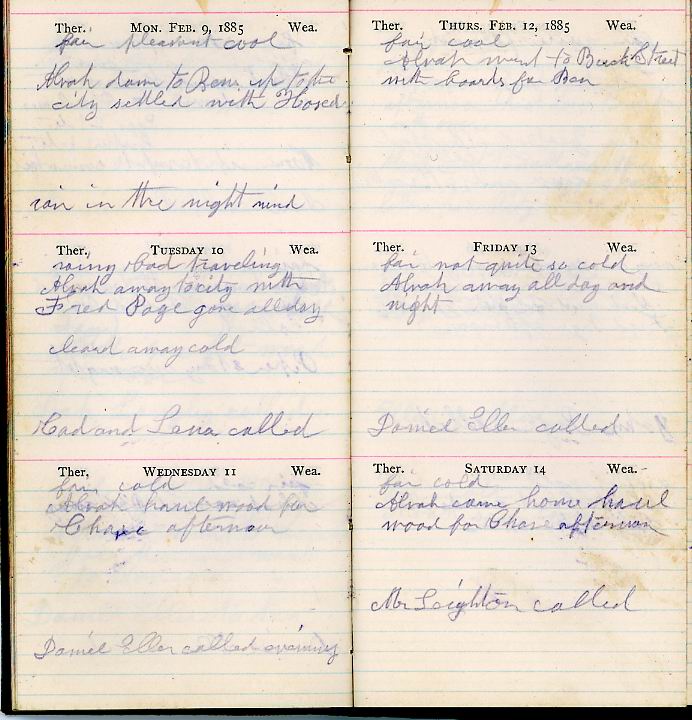 Ther. MON. FEB. 9, 1885 Wea.
fair pleasant cool
Alvah down to Bens up to the
city settled with Hosed
rain in the night wind
Ther. TUESDAY 10 Wea.
rainy bad traveling
Alvah away to city with
Fred Page gone all day
cleard away cold
and Lena called
Ther. WEDNESDAY 11 Wea.
fair cold
Alvah haul wood for
Chase afternoon
Daniel Eller called evening
Ther. THURS. FEB. 12, 1885 Wea.
fair cool
Alvah went to Buck Street
with boards for Ben
Ther. FRIDAY 13 Wea.
fair not quite so cold
Alvah away all day and
night
Daniel Eller called
Ther. SATURDAY 14 Wea.
fair cold
Alvah came home haul
wood for Chase afternoon
Mr Leighton called